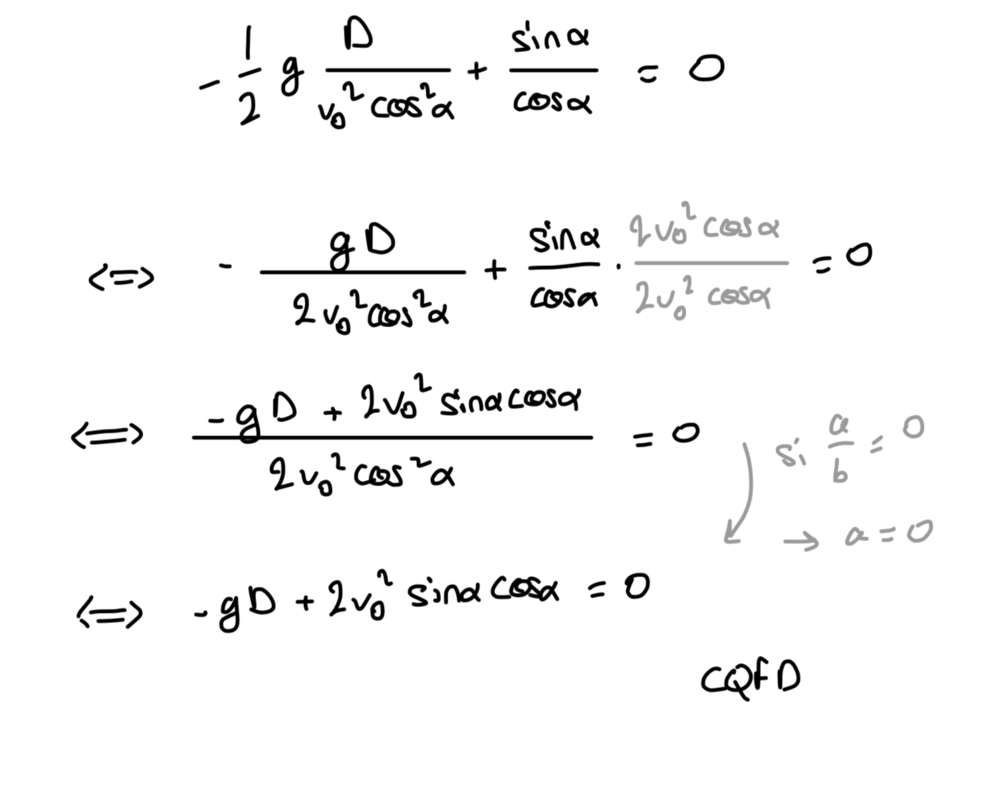 - 1/2 g D/(v₀² cos²α) + sinα/cosα = 0
<=> - gD/(2v₀² cos²α) + sinα/cosα · 2v₀² cosα/2v₀² cosα = 0
<=> (-gD + 2v₀² sinα cosα)/(2v₀² cos²α) = 0
si a/b = 0
→ a = 0
<=> -gD + 2v₀² sinα cosα = 0
CQFD